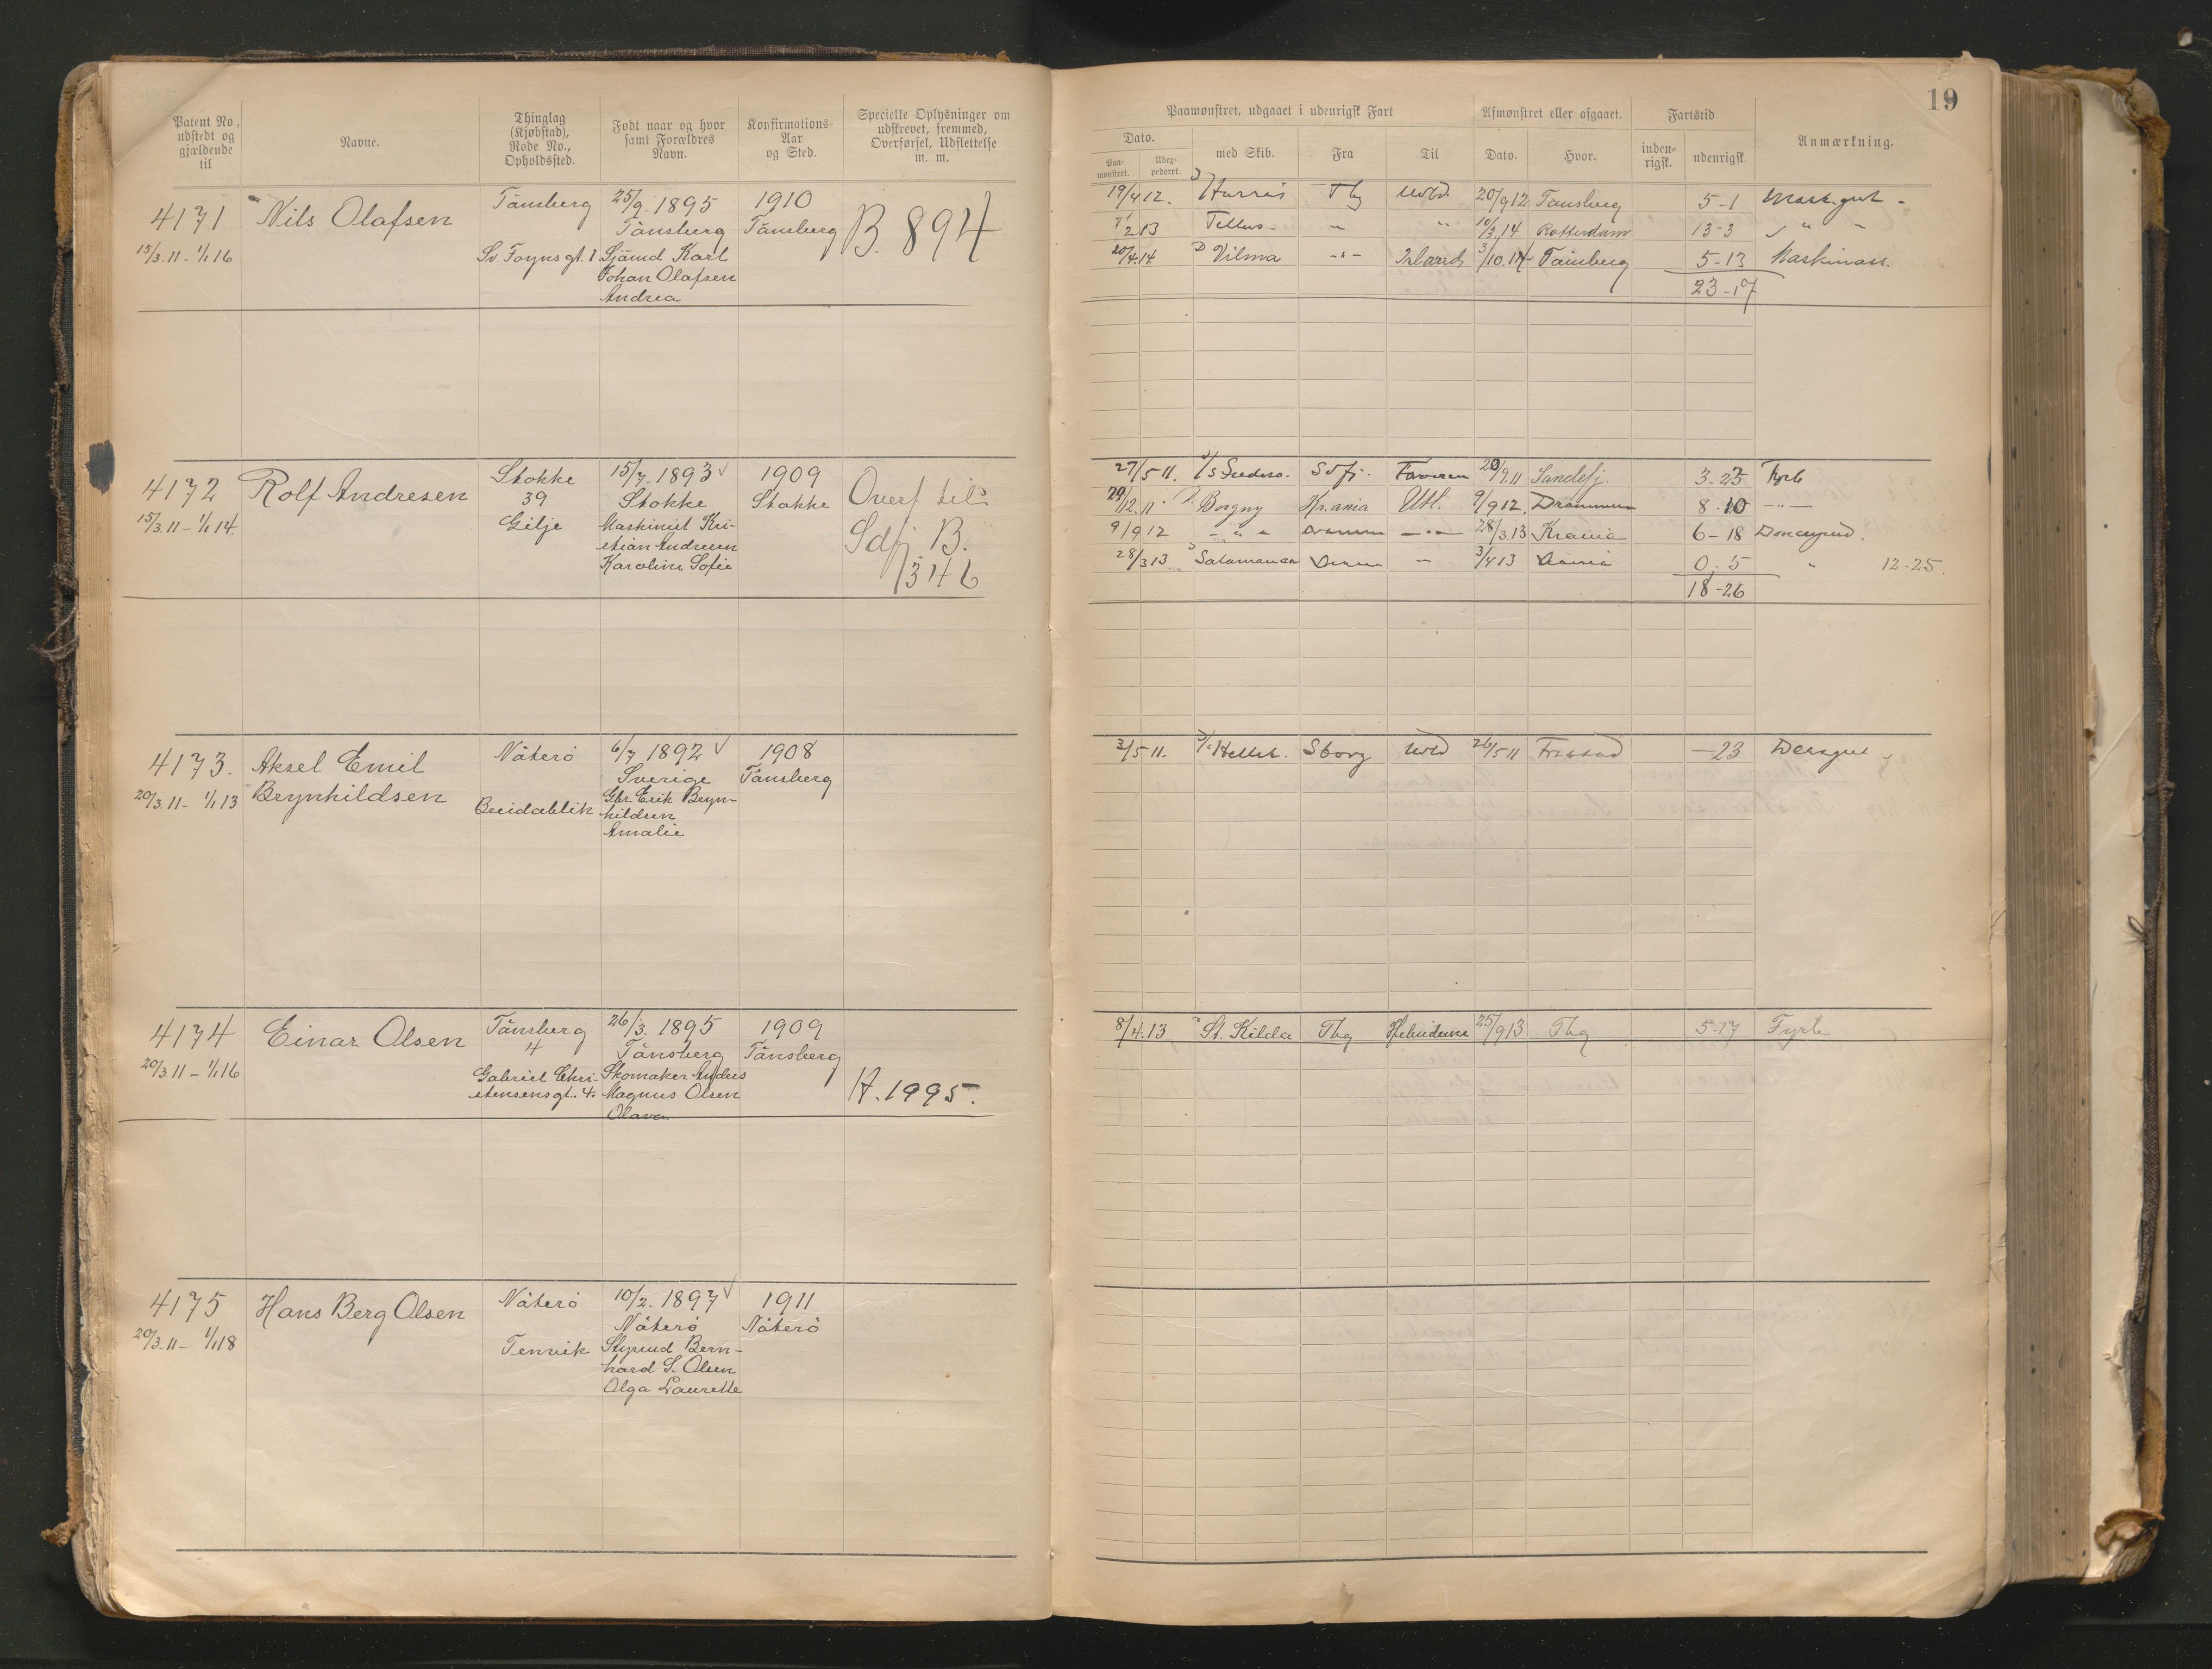 19
Patent No., udstedt og gjældende til
Navne.
Thinglag (Kjøbstad), Rode No., Opholdssted.
Født naar og hvor samt Forældres Navn.
Konfirmations-Aar og Sted.
Specielle Oplysninger om udskrevet, fremmed, Overførsel, Udslettelse m. m.
Paamønstret, udgaaet i udenrigsk Fart
Afmønstret eller afgaaet.
Fartstid
Anmærkning.
Dato.
Paamønstret.
Udexpederet.
med Skib.
Fra
Til
Dato.
Hvor.
indenrigsk.
udenrigsk.
4171
15/3.11 - 1/1 16
Nils Olafsen
Tånsberg
Sv. Foynsgt. 1
25/9. 1895
Tånsberg
Sjømd Karl
Johan Olafsen
Andrea
1910
Tånsberg
B. 894
19/4 12. Tbg 20/9 12 Tånsberg 5-1
2.13 Tellus - " - " 10/3.14 Rotterdam 13-3 " "
20/4.14 D Vilma - " - 3/10.14 Tånsberg 5-13 Maskinass.
23-17
4172
15/3.11 - 1/1 14.
Rolf Andresen
Stokke
39
Gilje
15/7. 1893 √
Stokke
Maskinist Kri-
stian Andresen
Karoline Sofie
1909
Stokke
Overf til
Sdfj. B.
1346
27/5 11. Sdfj. 20/9.11 Sandefj. 3-23 Fyrb
29/12.11 D. Borgny Kr.ania Utl. 9/9 12. Drammen 8-10 - " -
9/9 12 - " - Dramm - " - 28/3.13 Krania 6-18
28/3 13 D Salamanca - 3/4 13 0-5 " 12-25.
18-26
4173.
20/3.11 - 1/1 13
Aksel Emil
Brynhildsen
Nøterø
Breidablik
6/7 1892 √
Sverige
Gbr. Erik Bryn-
hildsen
Amalie
1908
Tånsberg
3/5 11. Sborg 26/5 11 - 23
4174
20/3.11 - 1/1 16
Einar Olsen
Tånsberg
4
Gabriel Chri-
stensensgt. 4.
26/3. 1895
Tånsberg
Skomaker Anders
Magnus Olsen
Olava
1909
Tånsberg
A. 1995.
8/4.13 D St. Kilda Tbg Hebriderne 25/9 13 Tbg 5-17 Fyrb
4175
20/3.11 - 1/1 18
Hans Berg Olsen
Nøterø
Tenvik
10/2. 1897 √
Nøterø
Styrmd Bern-
hard S. Olsen
Olga Laurette
1911
Nøterø